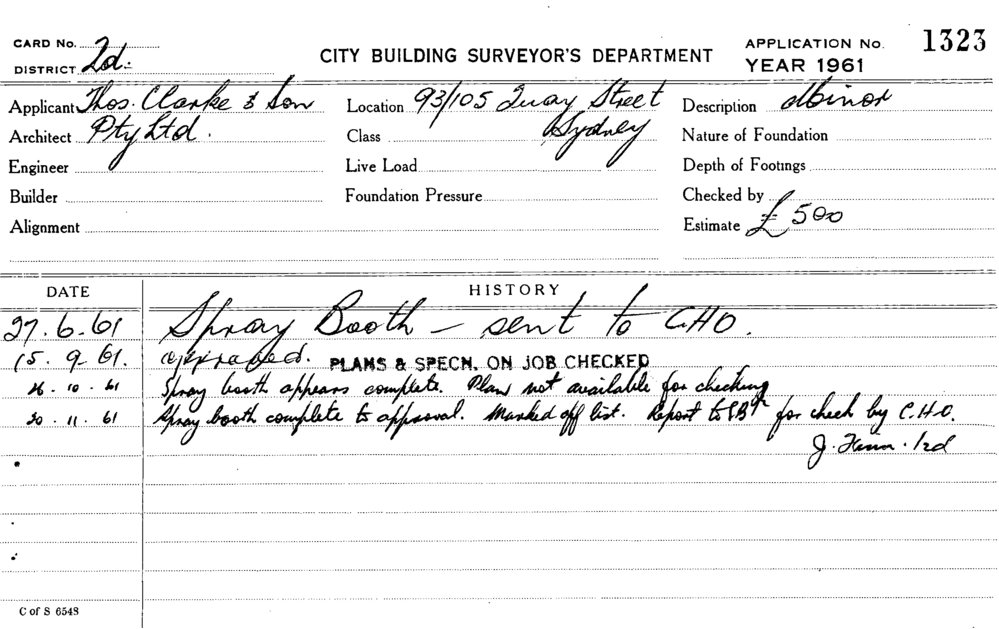 CARD No.
DISTRICT 2d.
CITY BUILDING SURVEYOR'S DEPARTMENT
APPLICATION No. 1323
YEAR 1961
Applicant Thos. Clarke & Son Location 93/105 Quay Street Description Minor
Architect Pty Ltd. Class Sydney Nature of Foundation
Engineer Live Load Depth of Footings
Builder Foundation Pressure Checked by
Alignment Estimate £500
DATE HISTORY
27.6.61 Spray Booth – sent to C.H.O.
15.9.61. approved. PLANS & SPECN. ON JOB CHECKED
26.10.61 Spray booth appears complete. Plan not available for checking
30.11.61 Spray booth complete to approval. Marked off list. Report to for check by C.H.O.
J.
C of S 6548